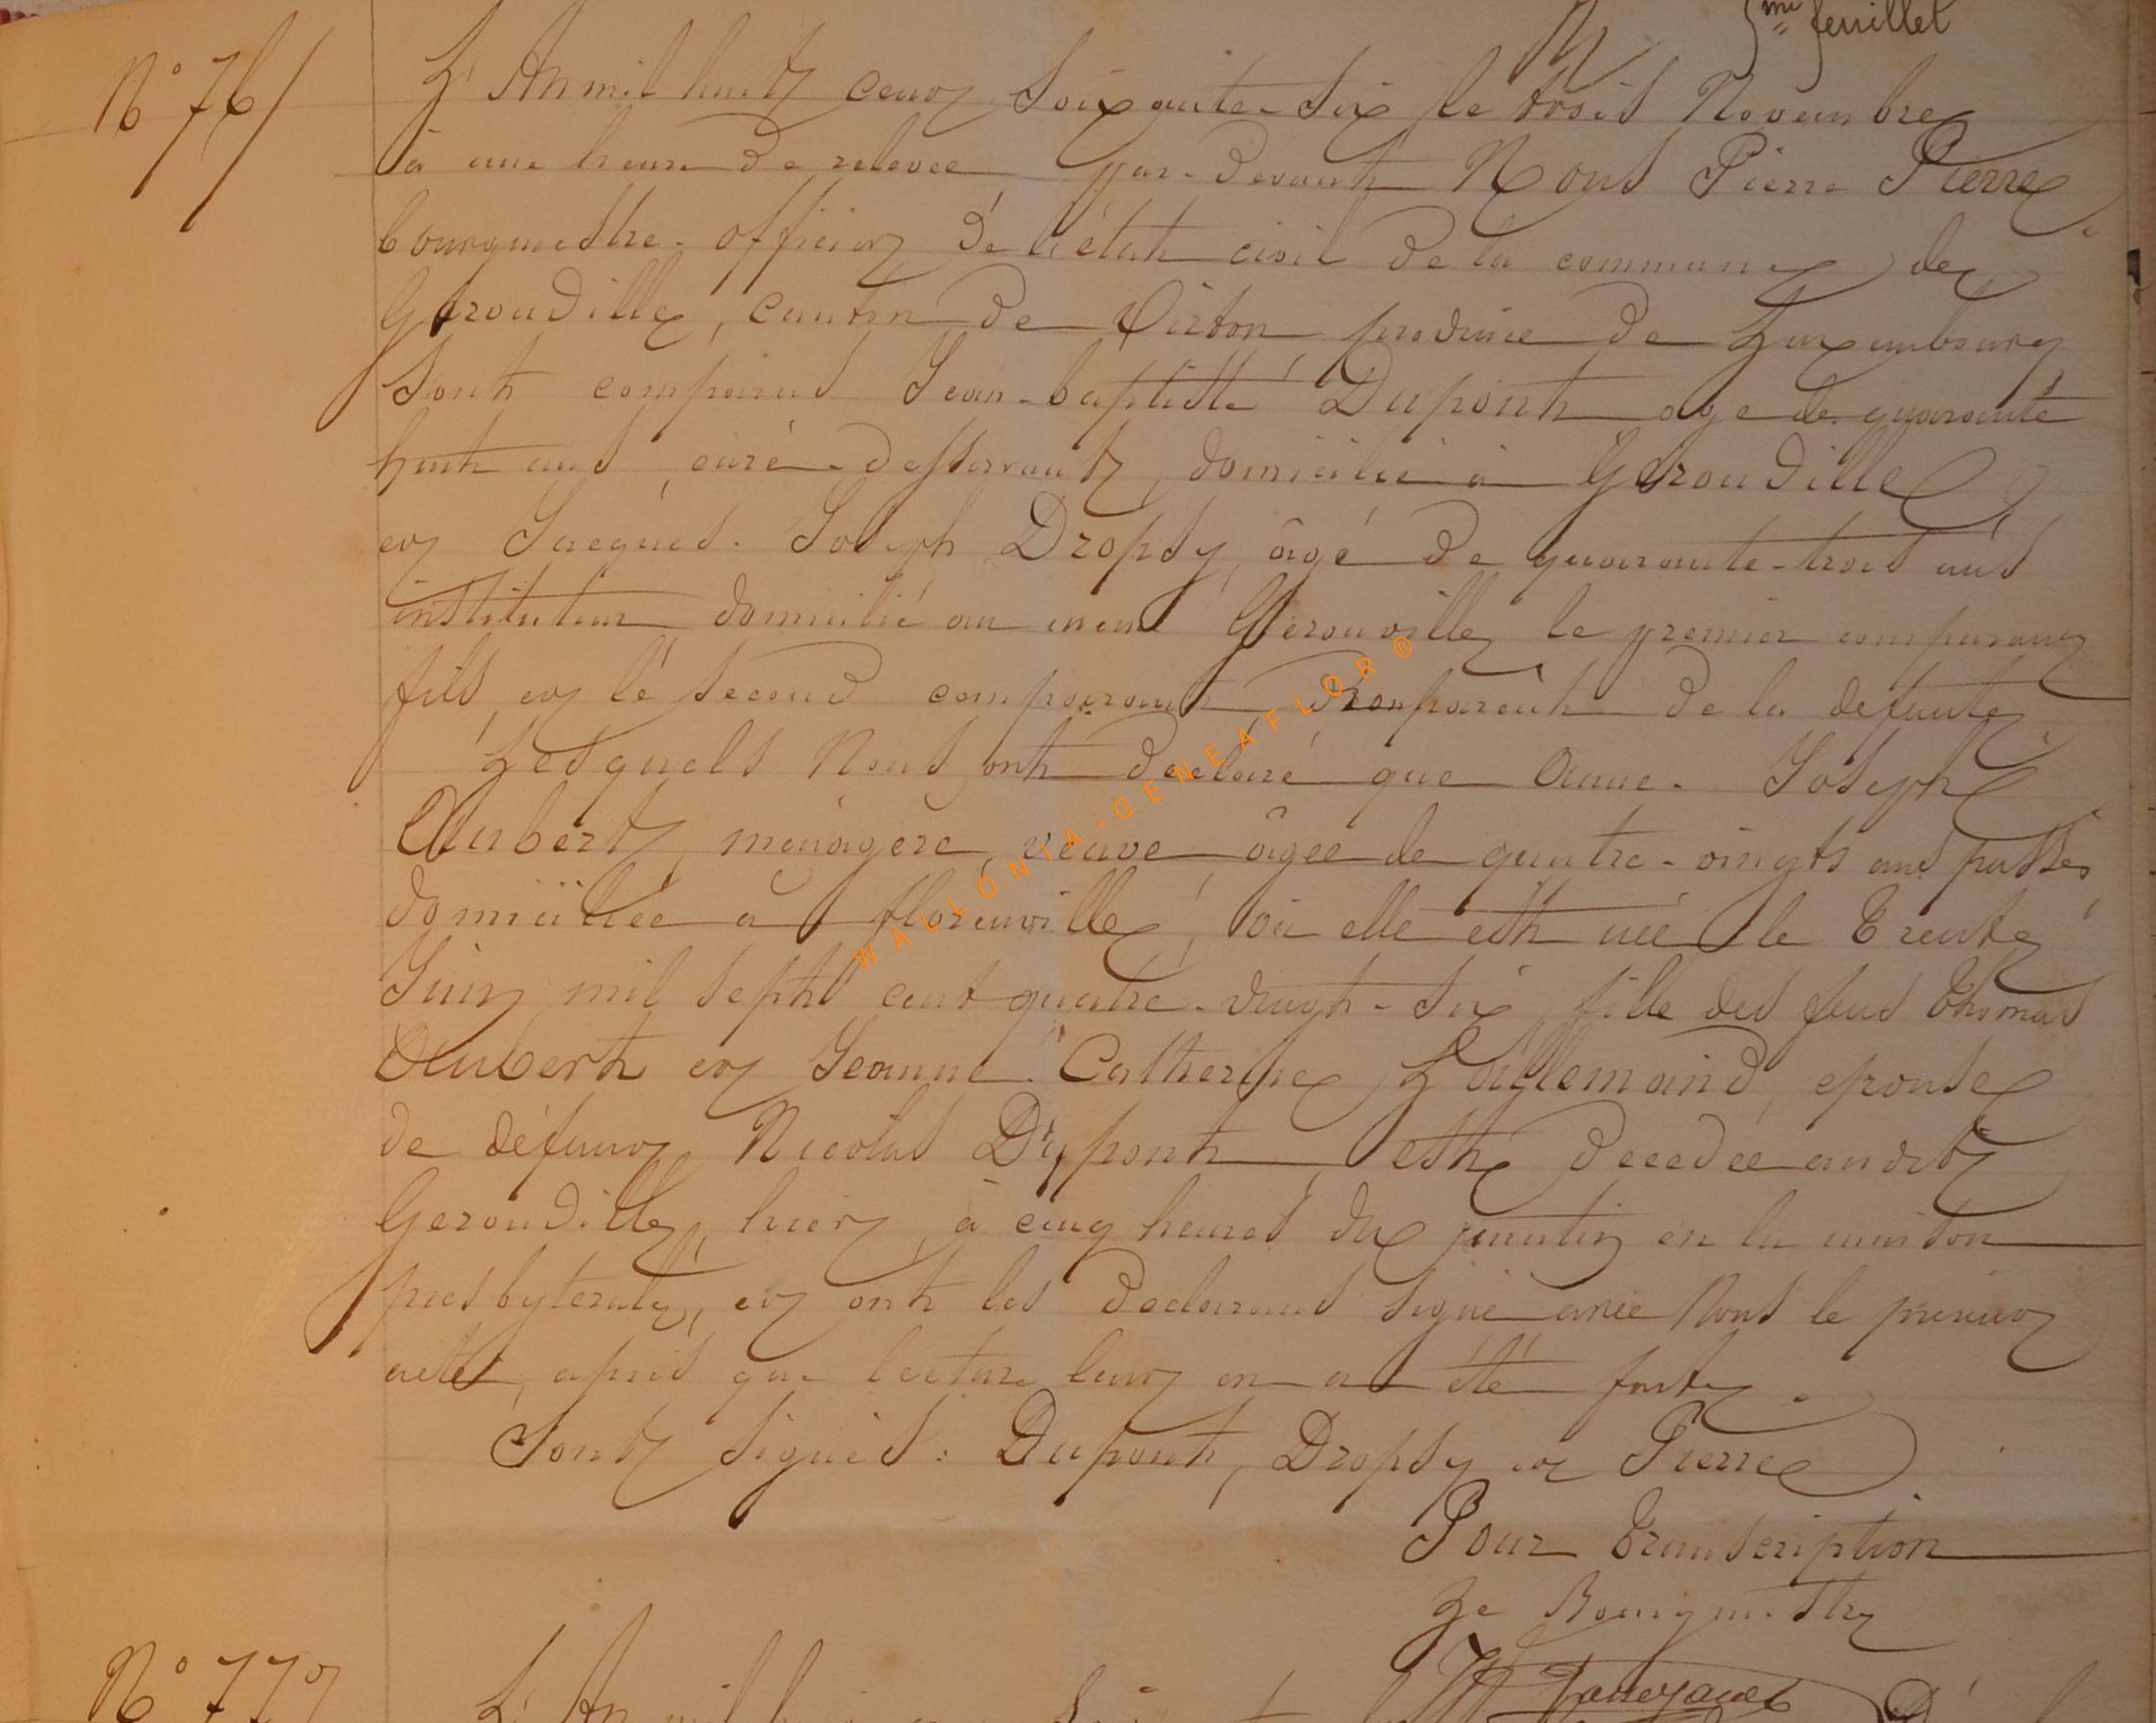 5me feuillet
N° 76
L'An mil huit cent soixante-six le trois Novembre
à une heure de relevée par-devant Nous Pierre Pierre
bourgmestre-officier de l'état civil de la commune de
Gérouville, canton de Virton province de Luxembourg
sont comparus Jean-baptiste Dupont age de quarante
huit ans, curé-desservant, domicilié à Gérouville
et Jacques-Joseph Dropsy, âgé de quarante-trois ans
instituteur domicilié au meme Gérouville, le premier comparant
fils, et le second comparant, de la défunte,
Lesquels Nous ont déclaré que Anne-Joseph
Aubert, ménagère, veuve âgée de quatre-vingts ans passés
domiciliée à florenville, où elle est née le Trente
Juin mil sept cent quatre-vingt-six, fille des feus Thomas
Aubert et Jeanne-Catherine Lallemand, epouse
de défunt Nicolas Dupont, est décedée audit
Gerouville, hier, à cinq heures du matin en la maison
presbyterale, et ont les declarans signé avec Nous le présent
acte, après que lecture leur en a été faite.
Sont signés: Dupont, Dropsy et Pierre
Pour Transcription
Le Bourgmestre
N° 77
L'An mil
WALLONIA-GENEAFLOR ®